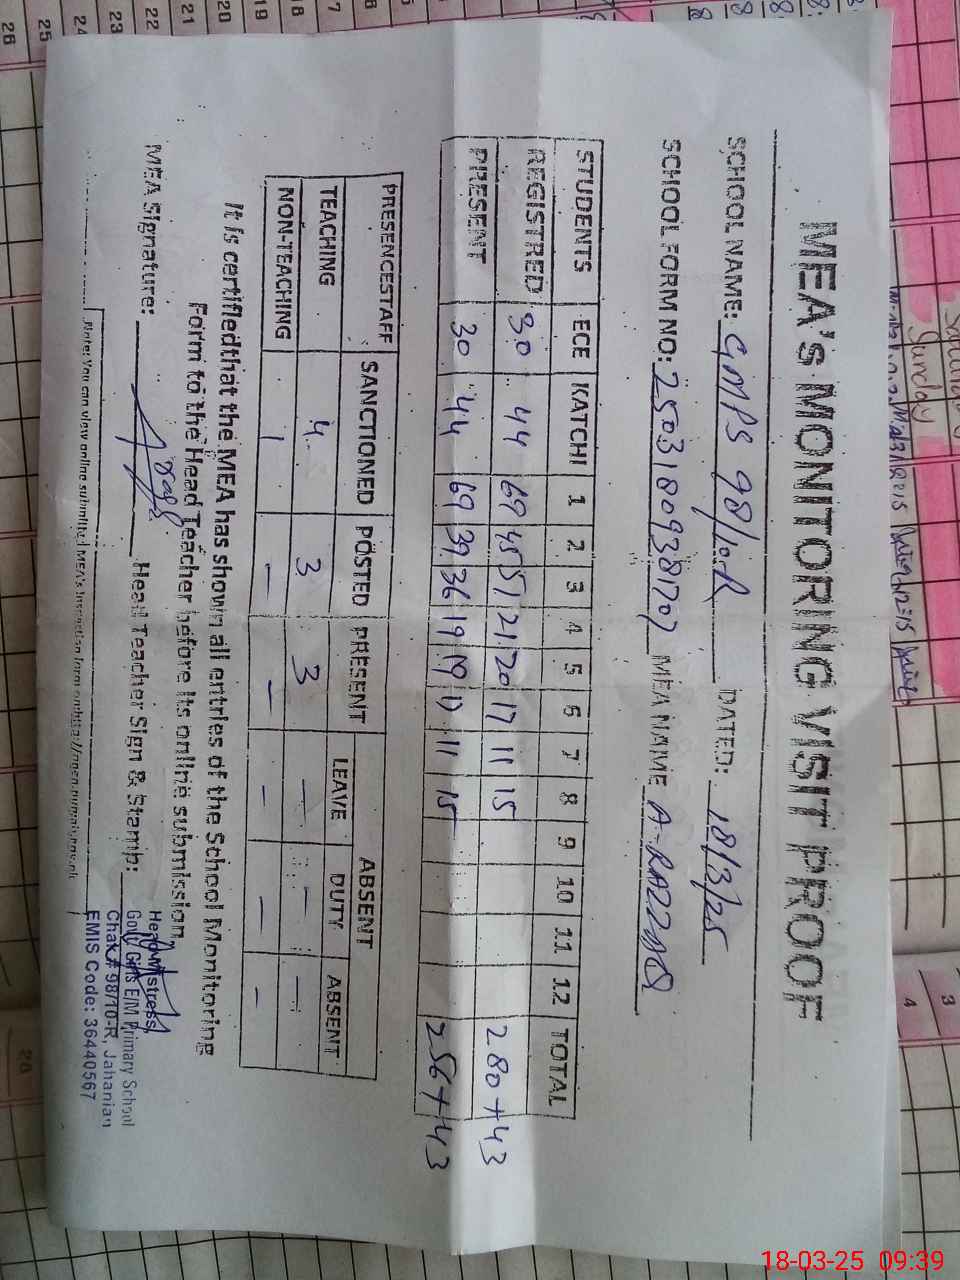 MEA's MONITORING VISIT PROOF
SCHOOL NAME: GMPS 98/10.R DATED: 18/3/25
SCHOOL FORM NO: 25031809381707 MEA NAME A-RAZZAQ
STUDENTS ECE KATCHI 1 2 3 4 5 6 7 8 9 10 11 12 TOTAL
REGISTRED 30 44 69 45 51 21 20 17 11 15 280+43
PRESENT 30 44 69 39 36 19 19 17 11 15 256+43
PRESENCESTAFF SANCTIONED POSTED PRESENT ABSENT
LEAVE DUTY ABSENT
TEACHING 4 3 3 — — —
NON-TEACHING 1 — — — — —
It is certifiedthat the MEA has shown all entries of the School Monitoring
Form to the Head Teacher before its online submission
MEA Signature: Head Teacher Sign & Stamp:
Headmistress,
Govt; Girls E/M Primary School
Chak # 98/10-R, Jahanian
EMIS Code: 36440567
Note: You can view online submitted MEA's Inspection form on
Sunday
15
16
17
18
19
20
21
22
23
24
25
26
3
4
18-03-25 09:39